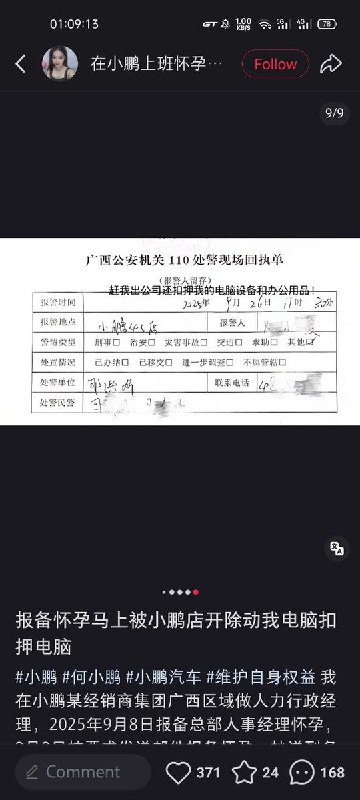 01:09:13
1.00 KB/S
5G
4G
78
在小鹏上班怀孕…
Follow
9/9
广西公安机关 110 处警现场回执单
(报警人留存)
赶我出公司还扣押我的电脑设备和办公用品!
报警时间 2025年 9月 26日 11时
报警地点 小鹏4S店 报警人
警情类型 刑事□ 治安□ 灾害事故□ 交通□ 求助□ 其他☑
处置情况 已办结□ 已移交□ 进一步调查□ 不属管辖□
处警单位 联系电话
处警民警
报备怀孕马上被小鹏店开除动我电脑扣
押电脑
#小鹏 #何小鹏 #小鹏汽车 #维护自身权益 我
在小鹏某经销商集团广西区域做人力行政经
理，2025年9月8日报备总部人事经理怀孕，
Comment
371
24
168